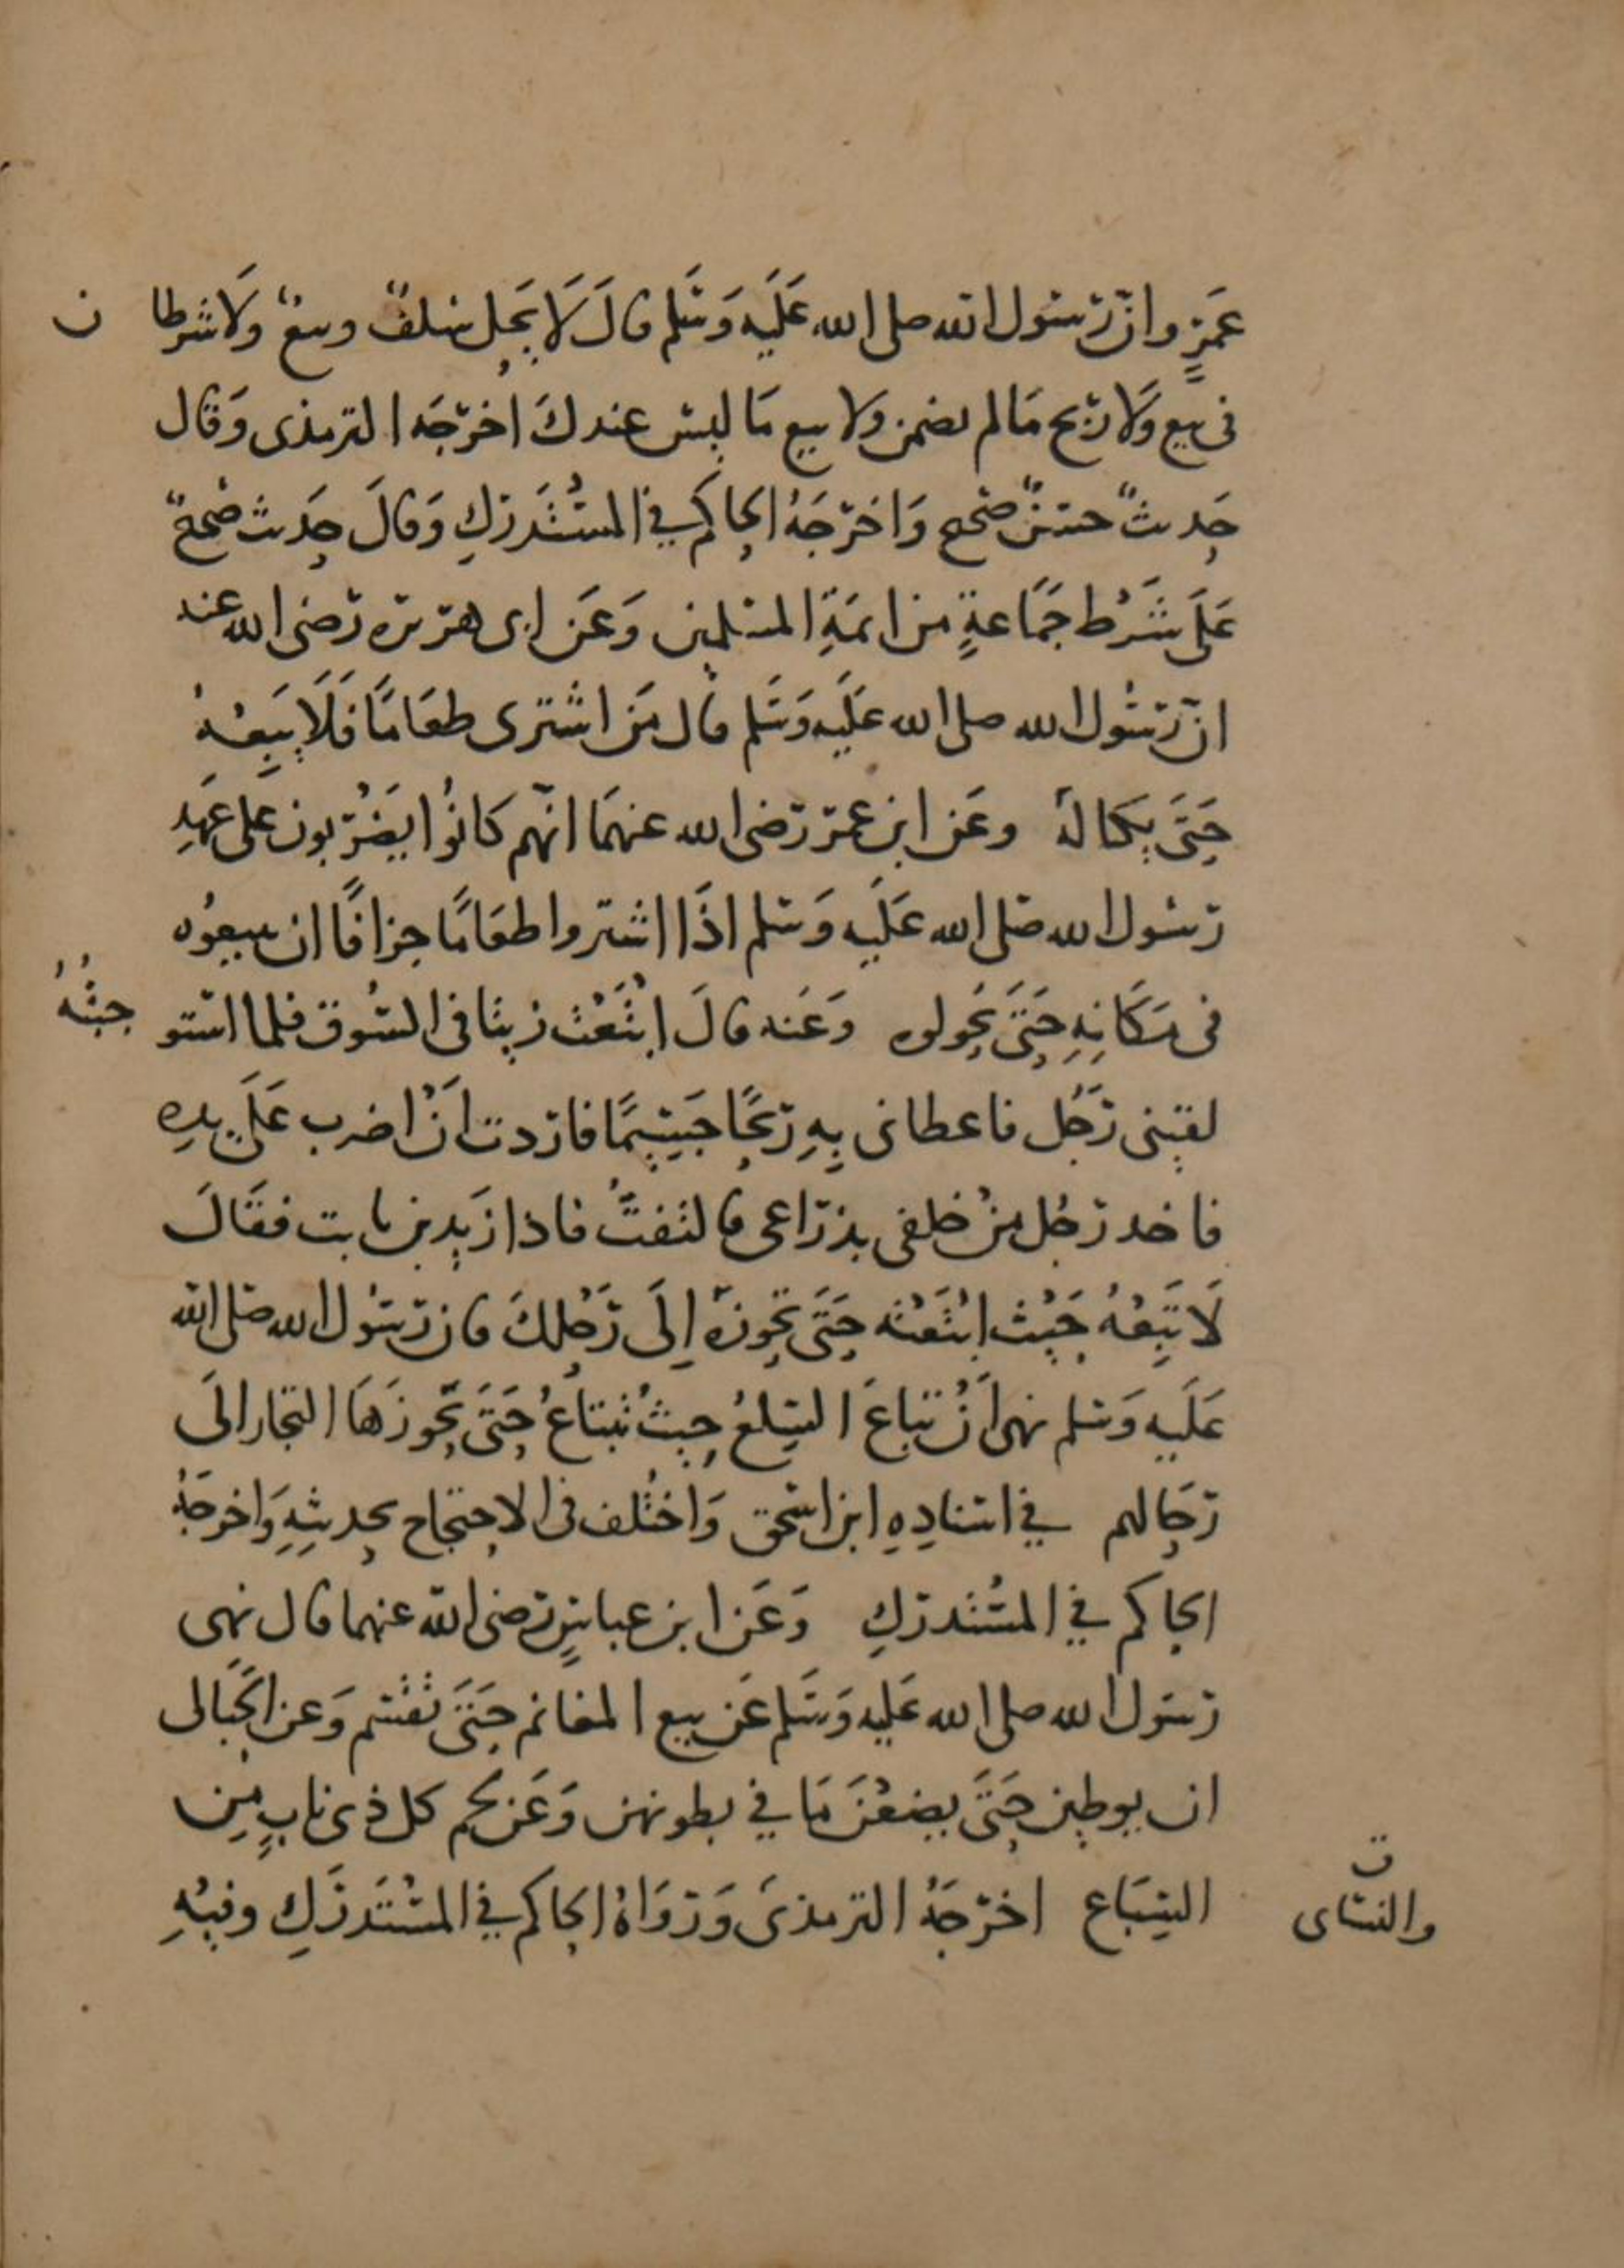 عَمرٍو انّ رسول الله صلى الله عَلَيه وَسَلم قالَ لَا يَحِل سَلفٌ وبيعٌ وَلَا شرطا ن
فى بيع وَلَا ربح مَا لم يضمن ولا بيع مَا ليس عندكَ اخرجَه الترمذى وَقال
حَديثٌ حسَنٌ صحيح وَاخرجَهُ الحاكم في المسْتَدركِ وَقالَ حَديث صَحيحٌ
عَلَى شَرْط جَمَاعةٍ من ائمَةِ المسلمين وَعَن ابى هريره رضى الله عنه
انّ رسُول الله صلى الله عَلَيه وَسَلم قال مَن اشترى طعَامًا فَلَا يَبِعْهُ
حَتَّى يكتاله وعَن ابن عمر رضى الله عنهمَا انّهم كانوُا يضْرَبون على عَهدِ
رسول الله صلى الله عَلَيه وَسلم اذَا اشتروا طعَامًا جزافًا ان يبيعوُه
فى مكَانِهِ حَتَّى يحولوه وَعَنه قالَ ابْتَعْتُ زيتا فى السُوق فلما استو جبتُهُ
لقيني رَجُل فاعطانى بِهِ ربحًا حَسَنًا فاردت انْ اضرب عَلَى يدِه
فاخد رجُل منْ خلفى بذراعى فالتفتُّ فاذا زَيد بن ثابت فقَالَ
لَا تَبِعْهُ حَيْث ابْتَعْتَه حَتَّى تحوزَهُ اِلَى رَحْلكَ فان رسُول الله صلى الله
عَلَيه وَسلم نهى اَنْ تباعَ السّلعُ حيثُ تُبتَاعُ حَتَّى يَحُوزَهَا التجار الَى
رحَالهم في اسنادِهِ ابن اسحق وَاختُلف فى الاحتجاج بحديثِهِ وَاخرجَهُ
الحاكم في المسْتَدركِ وَعَن ابن عباسٍ رضى الله عنهما قال نهى
رسَول الله صلى الله عَليه وَسَلم عَن بيع المغانم حَتَّى تُقسَم وَعن الحَبالى
ان يوطين حَتَّى يضعْنَ مَا في بطونهن وَعَن لحم كل ذى نابٍ مِن
السِّبَاع اخرجَهُ الترمذىَ وَرَوَاهُ الحاكم في المسْتَدرَكِ وفيْهِ
ق
والنساى